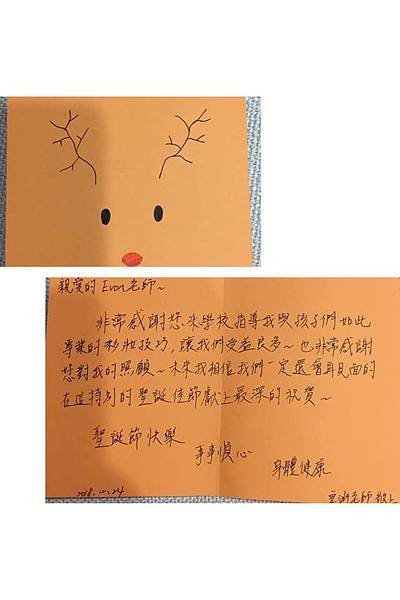 親愛的 Evon老師~
非常感謝您來學校指導我與孩子們如此
專業的彩妝技巧,讓我們受益良多~也非常感謝
您對我的照顧~未來我相信我們一定還會再見面的
在這特別的聖誕佳節獻上最深的祝賀~
聖誕節快樂
事事順心
身體健康
2018.12.24
老師 敬上